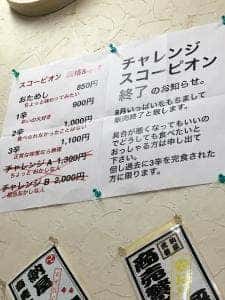 スコーピオン
おためし 850円
ちょっと味わってみたい
1辛 900円
辛いの大好き
2辛 1,000円
食べられなかったことはない
3辛 1,100円
チャレンジA 1,300円
ちょっとおかしな人
チャレンジB 2,000円
相当おかしな人
チャレンジ
スコーピオン
終了のお知らせ。
9月いっぱいをもちまして
販売終了と致します。
具合が悪くなってもいいの
でどうしても食べたいと
おっしゃる方は申し出て
下さい。
但し過去に3辛を完食された
方に限ります。